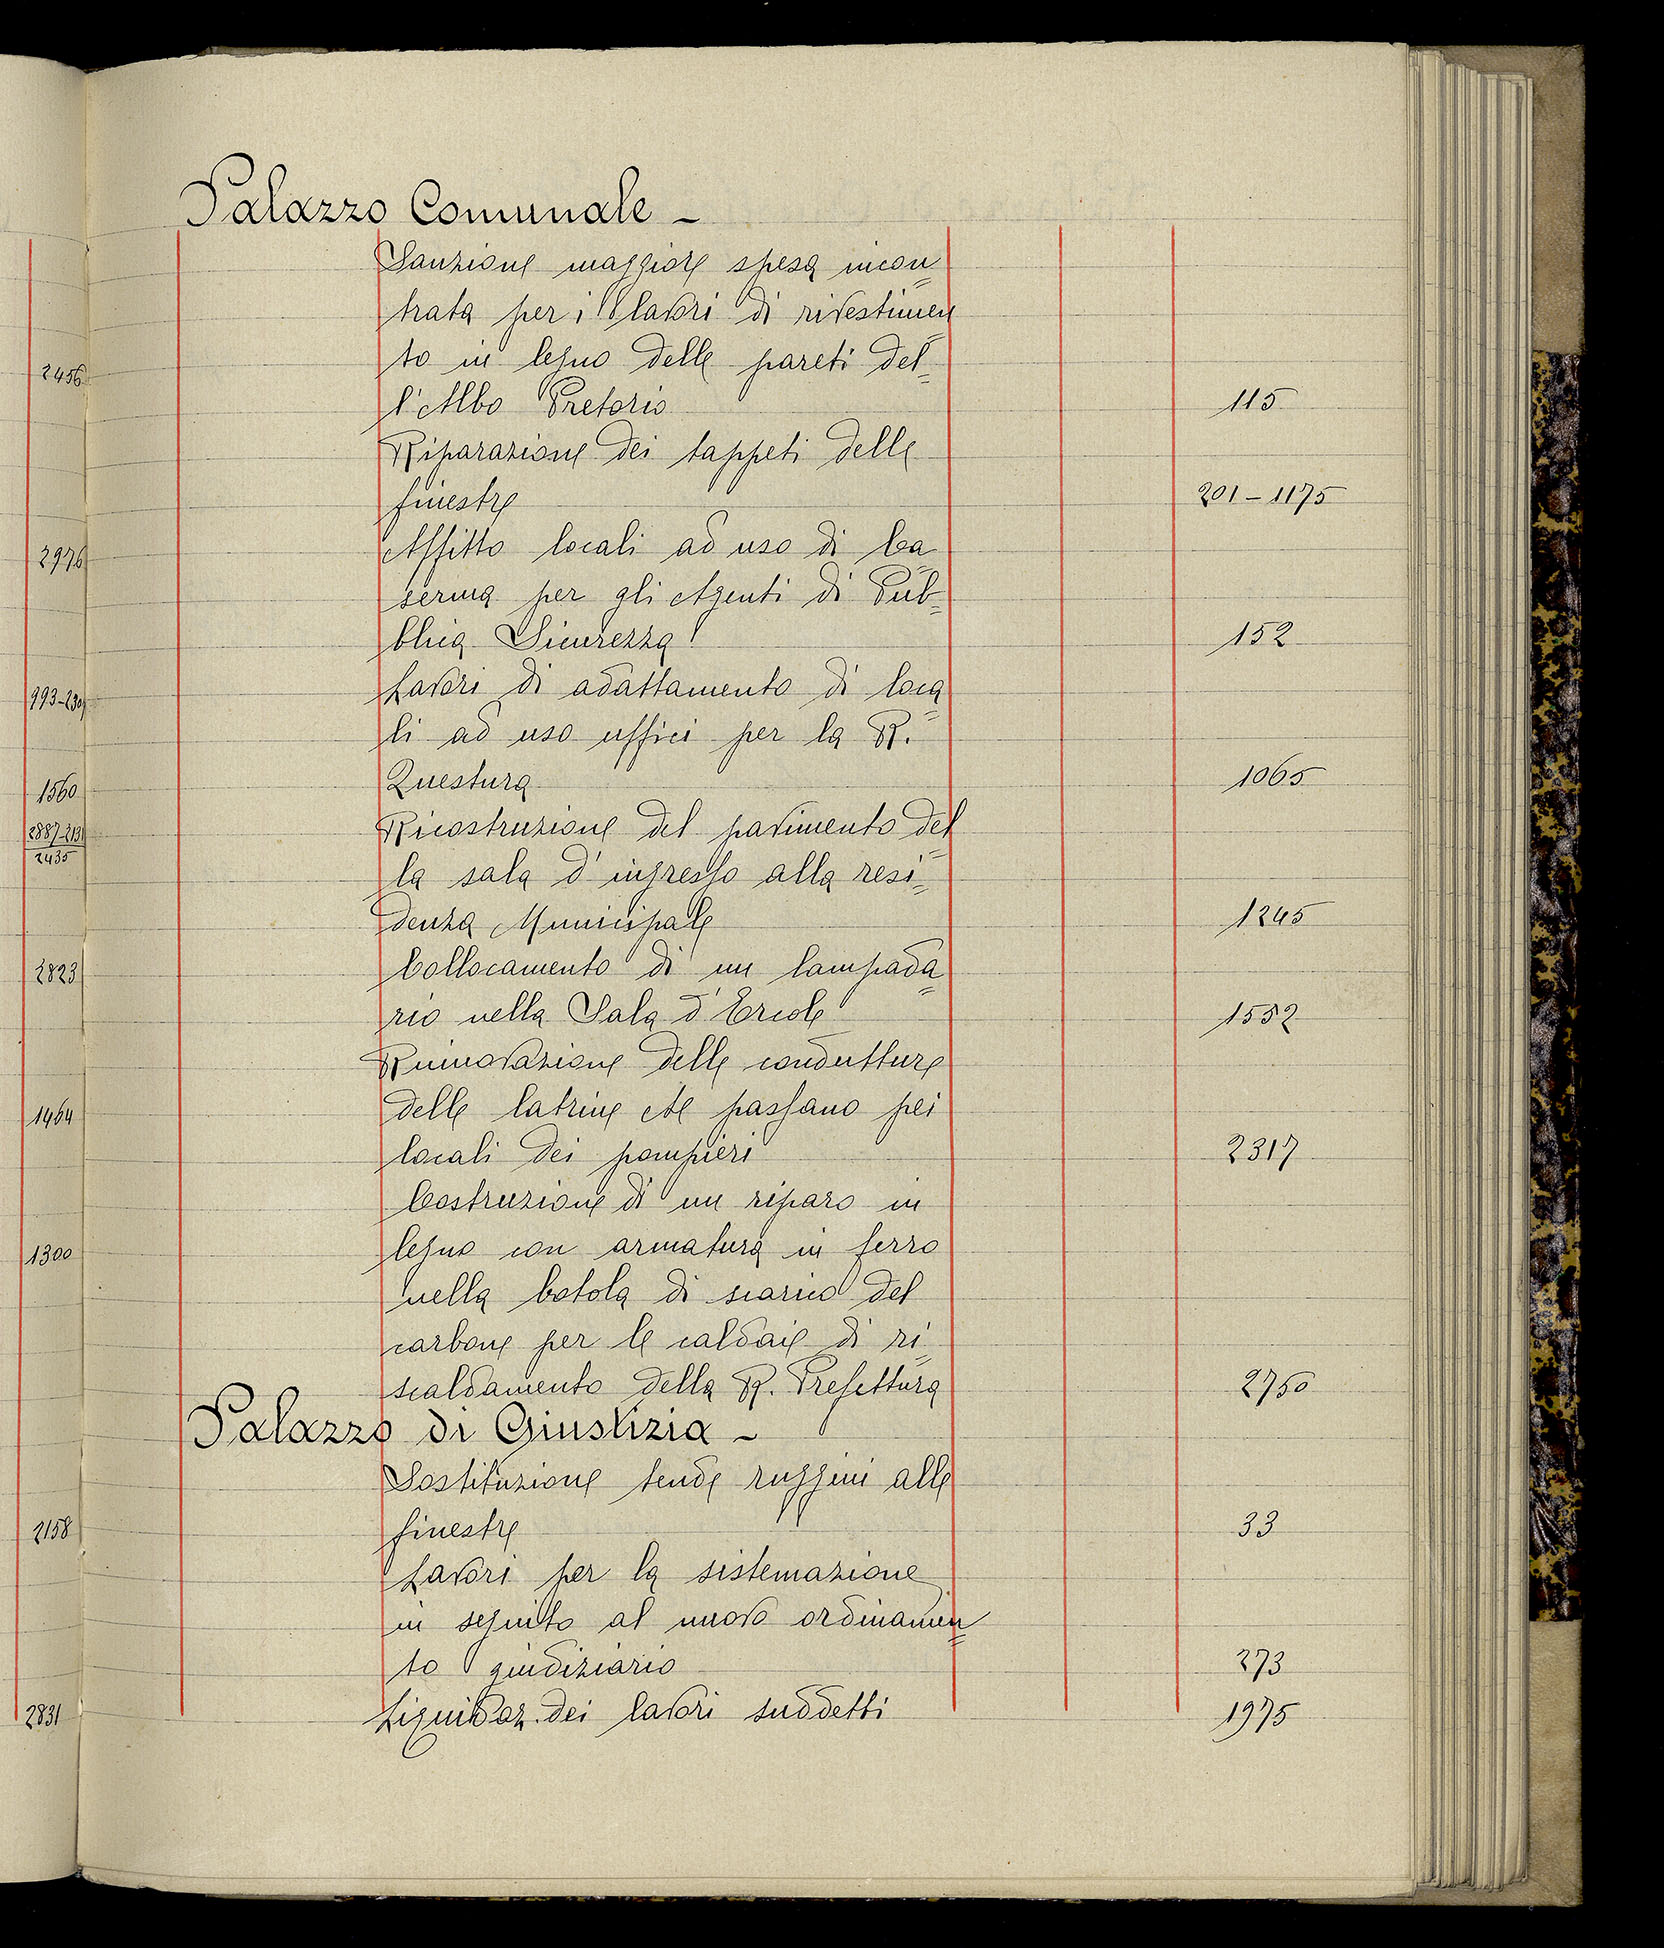 Palazzo Comunale -
Sanzione maggiore spesa incon=
trata per i lavori di rivestimen=
to in legno delle pareti del=
l'Albo Pretorio 115
Riparazione dei tappeti delle
finestre 201 - 1175
Affitto locali ad uso di Ca=
serma per gli Agenti di Pub=
blica Sicurezza 152
Lavori di adattamento di loca=
li ad uso uffici per la R.
Questura 1065
Ricostruzione del pavimento del=
la sala d'ingresso alla resi=
denza Municipale 1245
Collocamento di un lampada=
rio nella Sala d'Ercole 1552
Rinnovazione delle condutture
delle latrine che passano pei
locali dei pompieri 2317
Costruzione di un riparo in
legno con armatura in ferro
nella botola di scarico del
carbone per le caldaie di ri=
scaldamento della R. Prefettura 2750
Palazzo di Giustizia -
Sostituzione tende ruggini alle
finestre 33
Lavori per la sistemazione
in seguito al nuovo ordinamen=
to giudiziario 273
Liquidaz. dei lavori suddetti 1975
2456
2976
993-230
1560
2887-2131
2435
2823
1464
1300
2158
2831